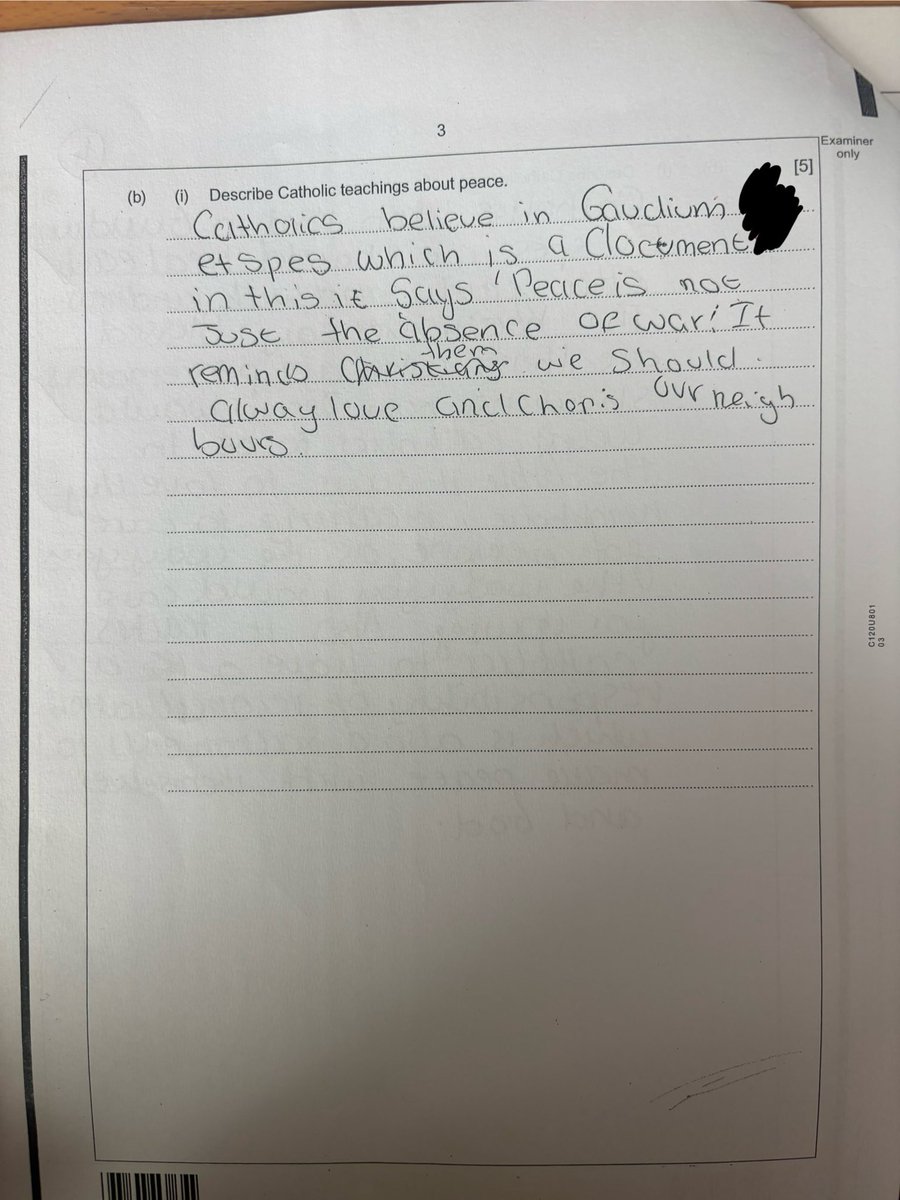 3
Examiner
only
(b) (i) Describe Catholic teachings about peace. [5]
Catholics believe in Gaudium
et spes which is a Document
in this it Says 'Peace is not
Just the absence of war.' It
them
reminds Christians we should
alway love and Choris our neigh
bours.
C120U801
03